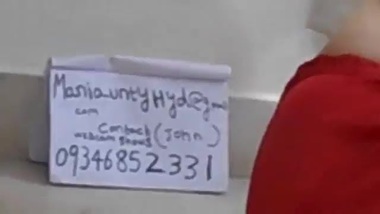 ManiauntyHyd@gmail
com
Contact (John)
webcam shows
09346852331